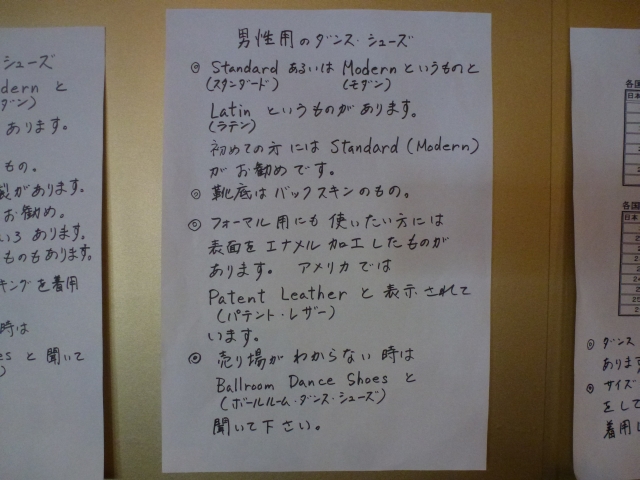 シューズ
dern と
ダン)
あります。
もの。
製があります。
お勧め。
いろ あります。
ものもあります。
キングを着用
時は
es と 聞いて
男性用のダンス・シューズ
◎ Standard あるいは Modern というものと
(スタンダード) (モダン)
Latin というものがあります。
(ラテン)
初めての方には Standard (Modern)
がお勧めです。
◎ 靴底はバックスキンのもの。
◎ フォーマル用にも 使いたい方には
表面をエナメル加工したものが
あります。 アメリカでは
Patent Leather と表示されて
(パテント・レザー)
います。
◎ 売り場がわからない時は
Ballroom Dance Shoes と
(ボールルーム・ダンス・シューズ)
聞いて下さい。
各国
日本
各国
日本
◎ ダンス
あります
◎ サイズ
をして
着用し